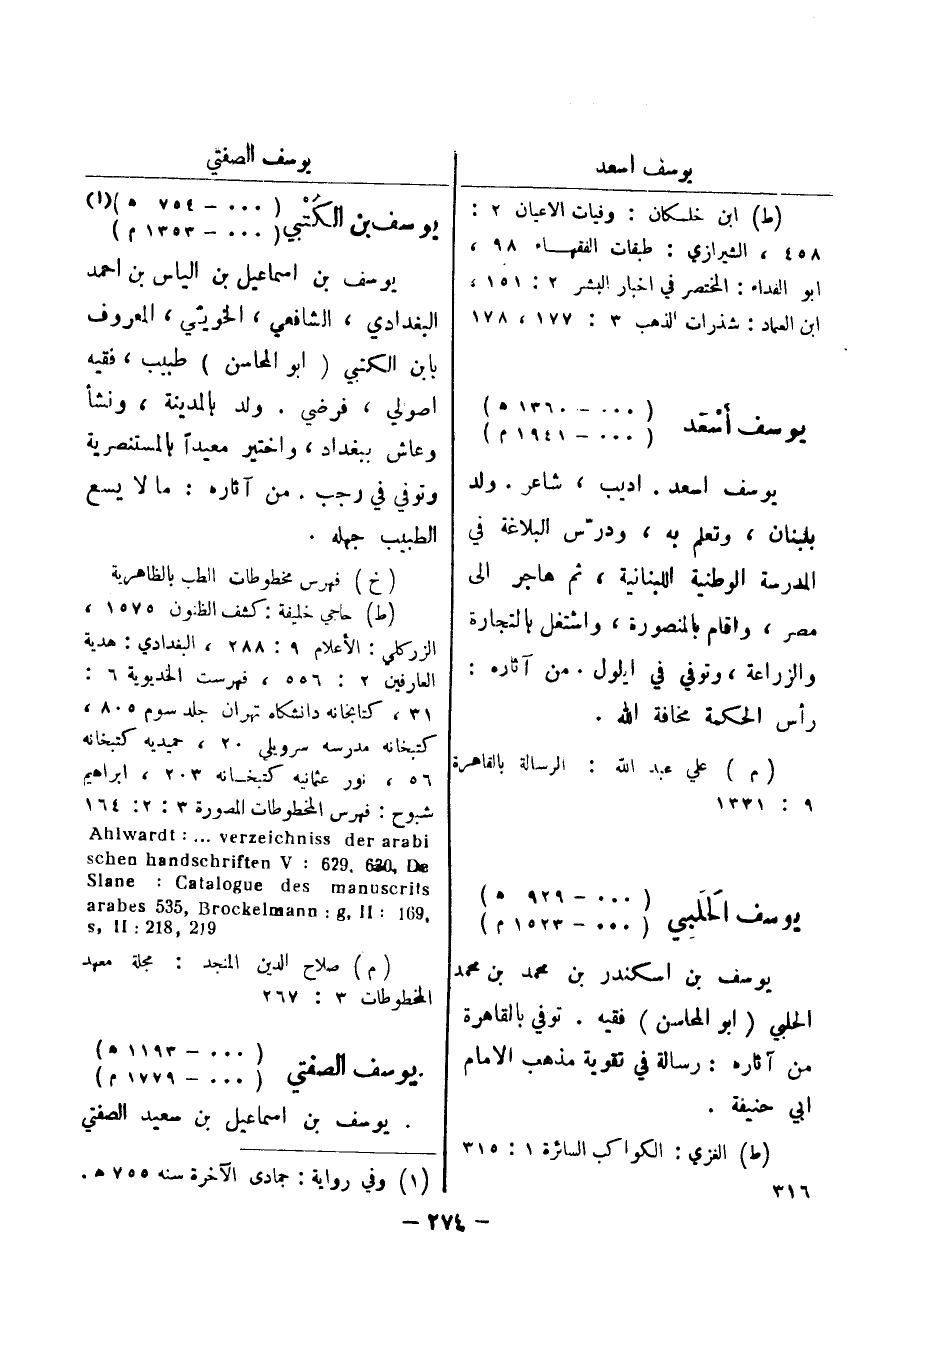 يوسف اسعد
(ط) ابن خلكان : وفيات الاعيان ٢ :
٤٥٨ ، الشيرازي : طبقات الفقهاء ٩٨ ،
ابو الفداء : المختصر في اخبار البشر ٢ : ١٥١ ،
ابن العماد : شذرات الذهب ٣ : ١٧٧ ، ١٧٨
يوسف أسْعَد
( ٠٠٠ - ١٣٦٠ ه )
( ٠٠٠ - ١٩٤١ م )
يوسف اسعد . اديب ، شاعر . ولد
بلبنان ، وتعلم به ، ودرّس البلاغة في
المدرسة الوطنية اللبنانية ، ثم هاجر الى
مصر ، واقام بالمنصورة ، واشتغل بالتجارة
والزراعة ، وتوفي في ايلول . من آثاره :
رأس الحكمة مخافة الله .
( م ) علي عبد الله : الرسالة بالقاهرة
٩ : ١٣٣١
يوسف الحَلَبِي
( ٠٠٠ - ٩٢٩ ه )
( ٠٠٠ - ١٥٢٣ م )
يوسف بن اسكندر بن محمد بن محمد
الحلبي ( ابو المحاسن ) فقيه . توفي بالقاهرة
من آثاره : رسالة في تقوية مذهب الامام
ابي حنيفة .
(ط) الغزي : الكواكب السائرة ١ : ٣١٥
٣١٦
يوسف الصفتي
يوسف بن الكُتْبي
( ٠٠٠ - ٧٥٤ ه )(١)
( ٠٠٠ - ١٣٥٣ م )
يوسف بن اسماعيل بن الياس بن احمد
البغدادي ، الشافعي ، الخويّي ، المعروف
بابن الكتبي ( ابو المحاسن ) طبيب ، فقيه
اصولي ، فرضي . ولد بالمدينة ، ونشأ
وعاش ببغداد ، واختير معيداً بالمستنصرية
وتوفي في رجب . من آثاره : ما لا يسع
الطبيب جهله .
( خ ) فهرس مخطوطات الطب بالظاهرية
(ط) حاجي خليفة : كشف الظنون ١٥٧٥ ،
الزركلي : الأعلام ٩ : ٢٨٨ ، البغدادي : هدية
العارفين ٢ : ٥٥٦ ، فهرست الخديوية ٦ :
٣١ ، كتابخانه دانشكاه تهران جلد سوم ٨٠٥ ،
كتبخانه مدرسه سرويلي ٢٠ ، حميديه كتبخانه
٥٦ ، نور عثمانيه كتبخانه ٢٠٣ ، ابراهيم
شبوح : فهرس المخطوطات المصورة ٣ : ٢ : ١٦٤
Ahlwardt : ... verzeichniss der arabi
schen handschriften V : 629, 630, De
Slane : Catalogue des manuscrits
arabes 535, Brockelmann : g, II : 169,
s, II : 218, 219
( م ) صلاح الدين المنجد : مجلة معهد
المخطوطات ٣ : ٢٦٧
يوسف الصفتي
( ٠٠٠ - ١١٩٣ ه )
( ٠٠٠ - ١٧٧٩ م )
. يوسف بن اسماعيل بن سعيد الصفتي
(١) وفي رواية : جمادى الآخرة سنه ٧٥٥ ه .
- ٢٧٤ -